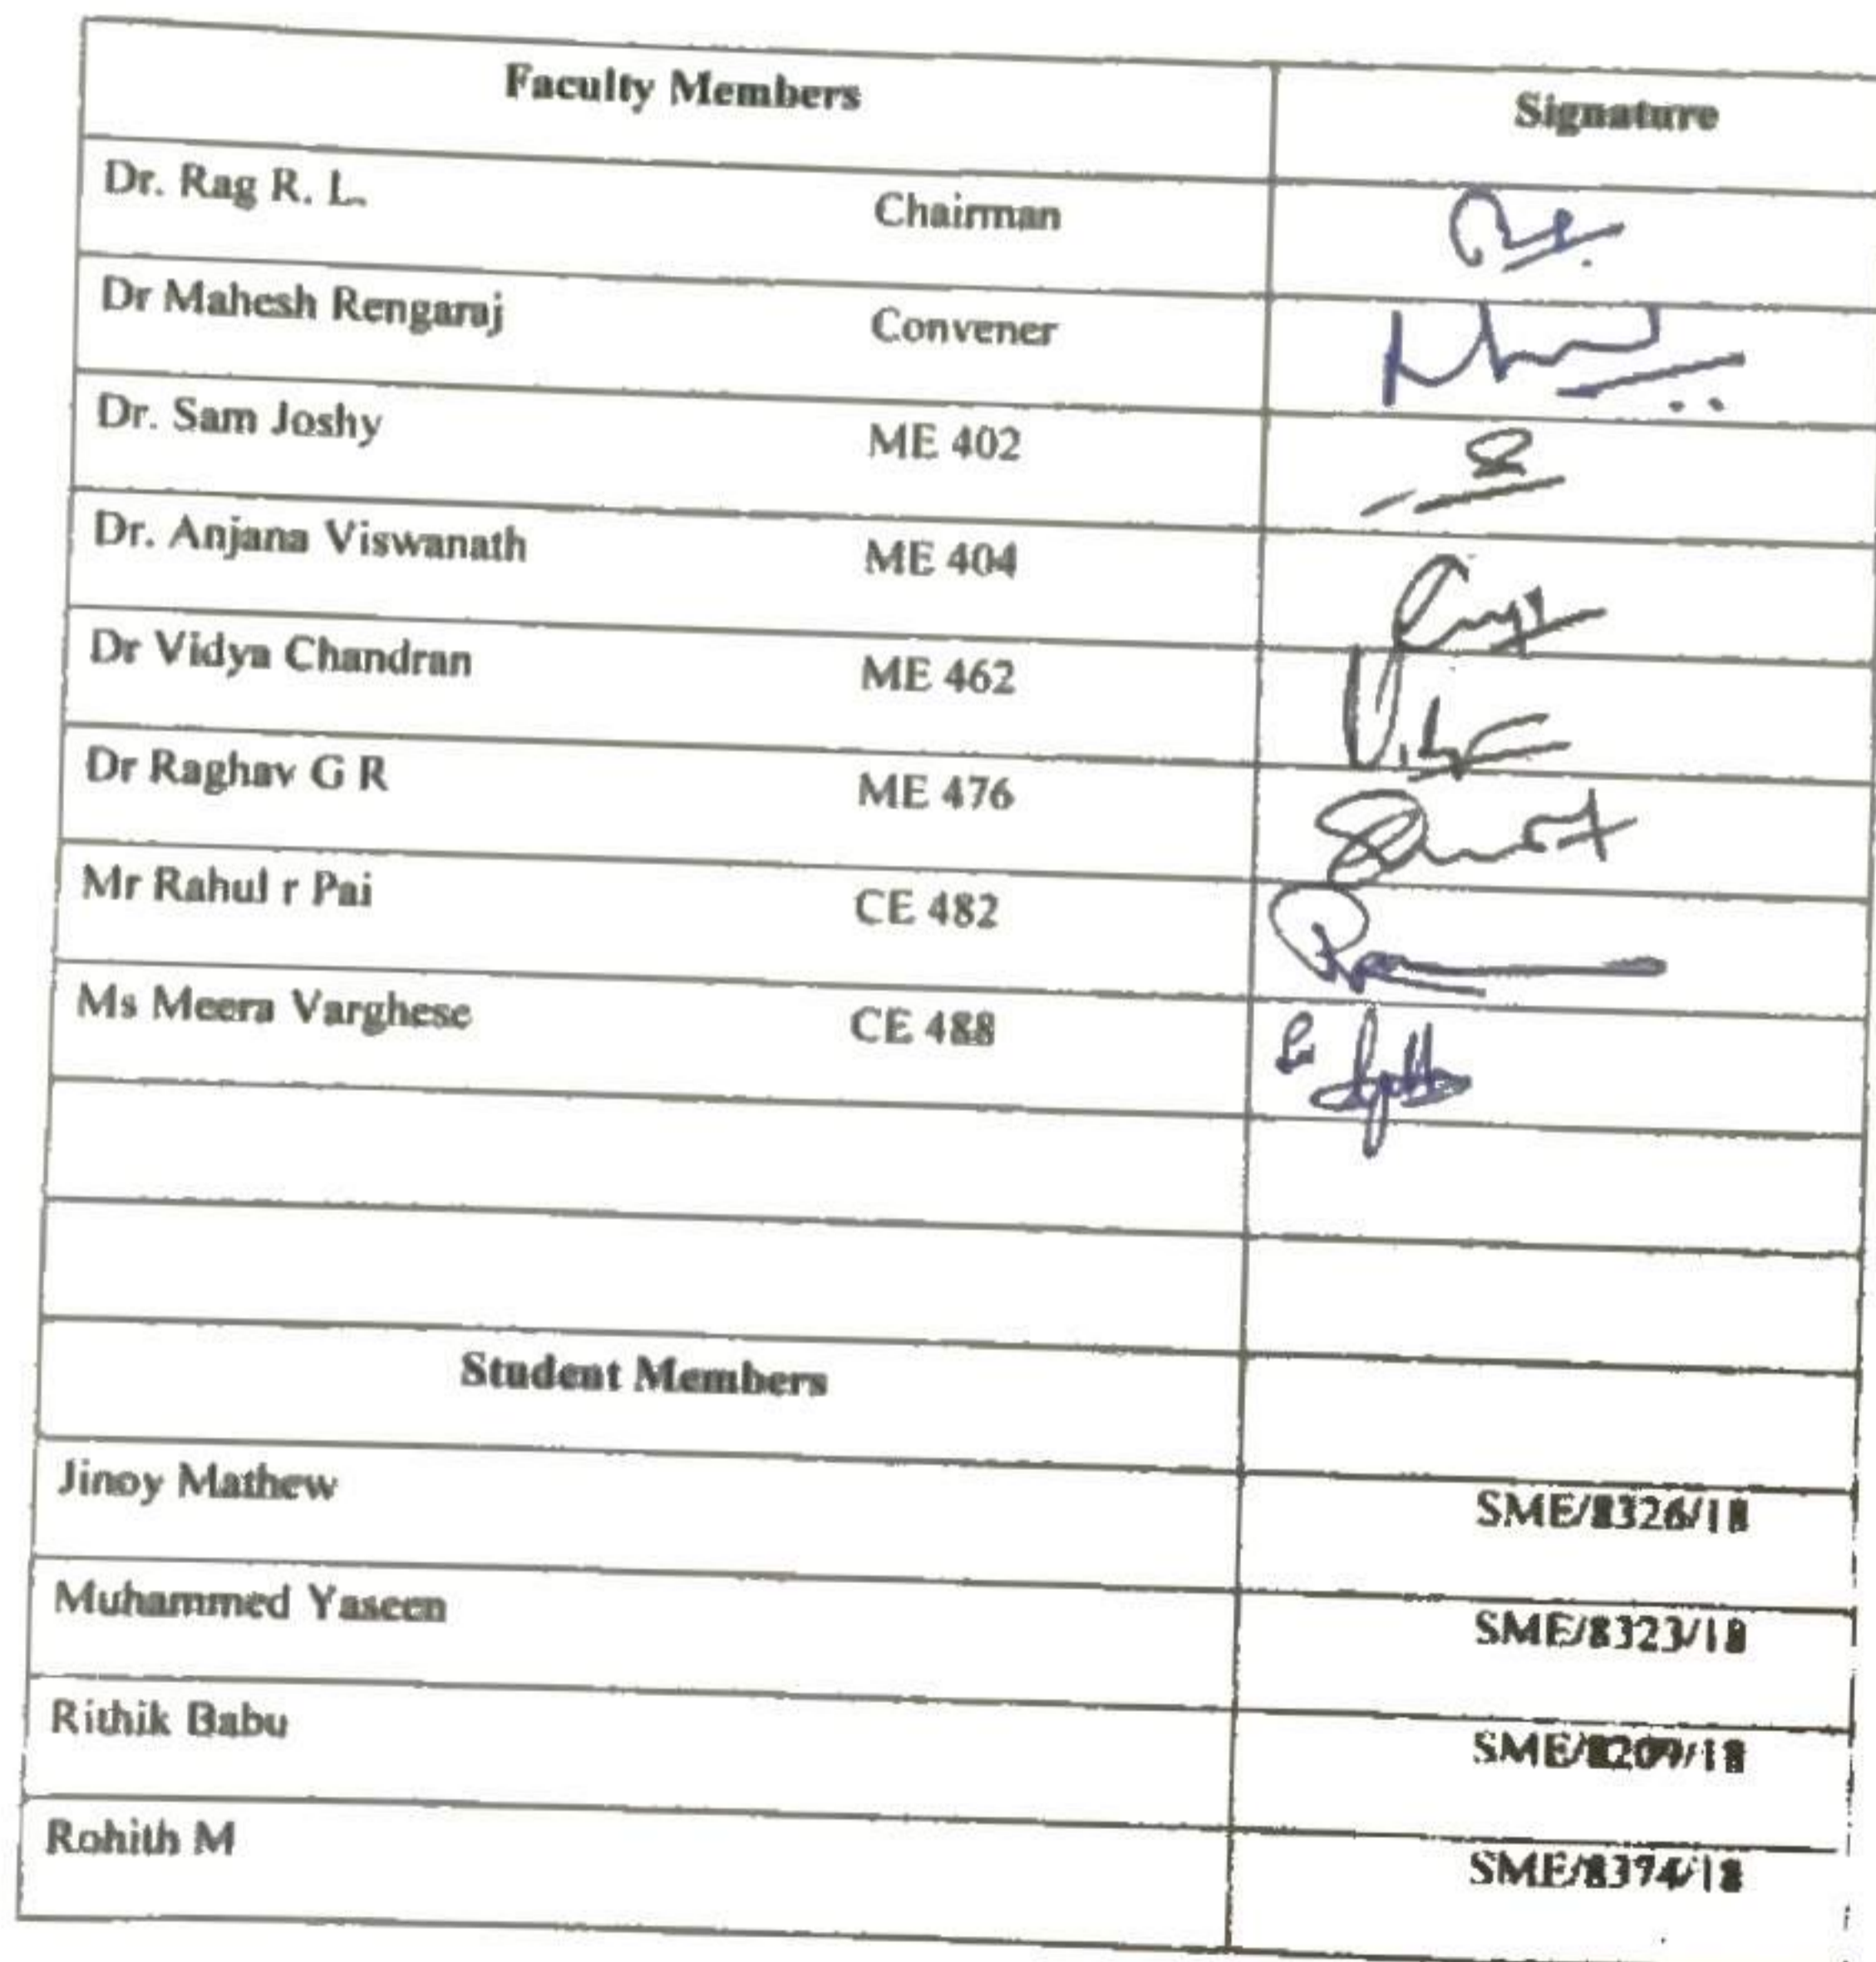 Faculty Members Signature
Dr. Rag R. L. Chairman
Dr Mahesh Rengaraj Convener
Dr. Sam Joshy ME 402
Dr. Anjana Viswanath ME 404
Dr Vidya Chandran ME 462
Dr Raghav G R ME 476
Mr Rahul r Pai CE 482
Ms Meera Varghese CE 488
Student Members
Jinoy Mathew SME/8326/18
Muhammed Yaseen SME/8323/18
Rithik Babu SME/8209/18
Rohith M SME/8374/18